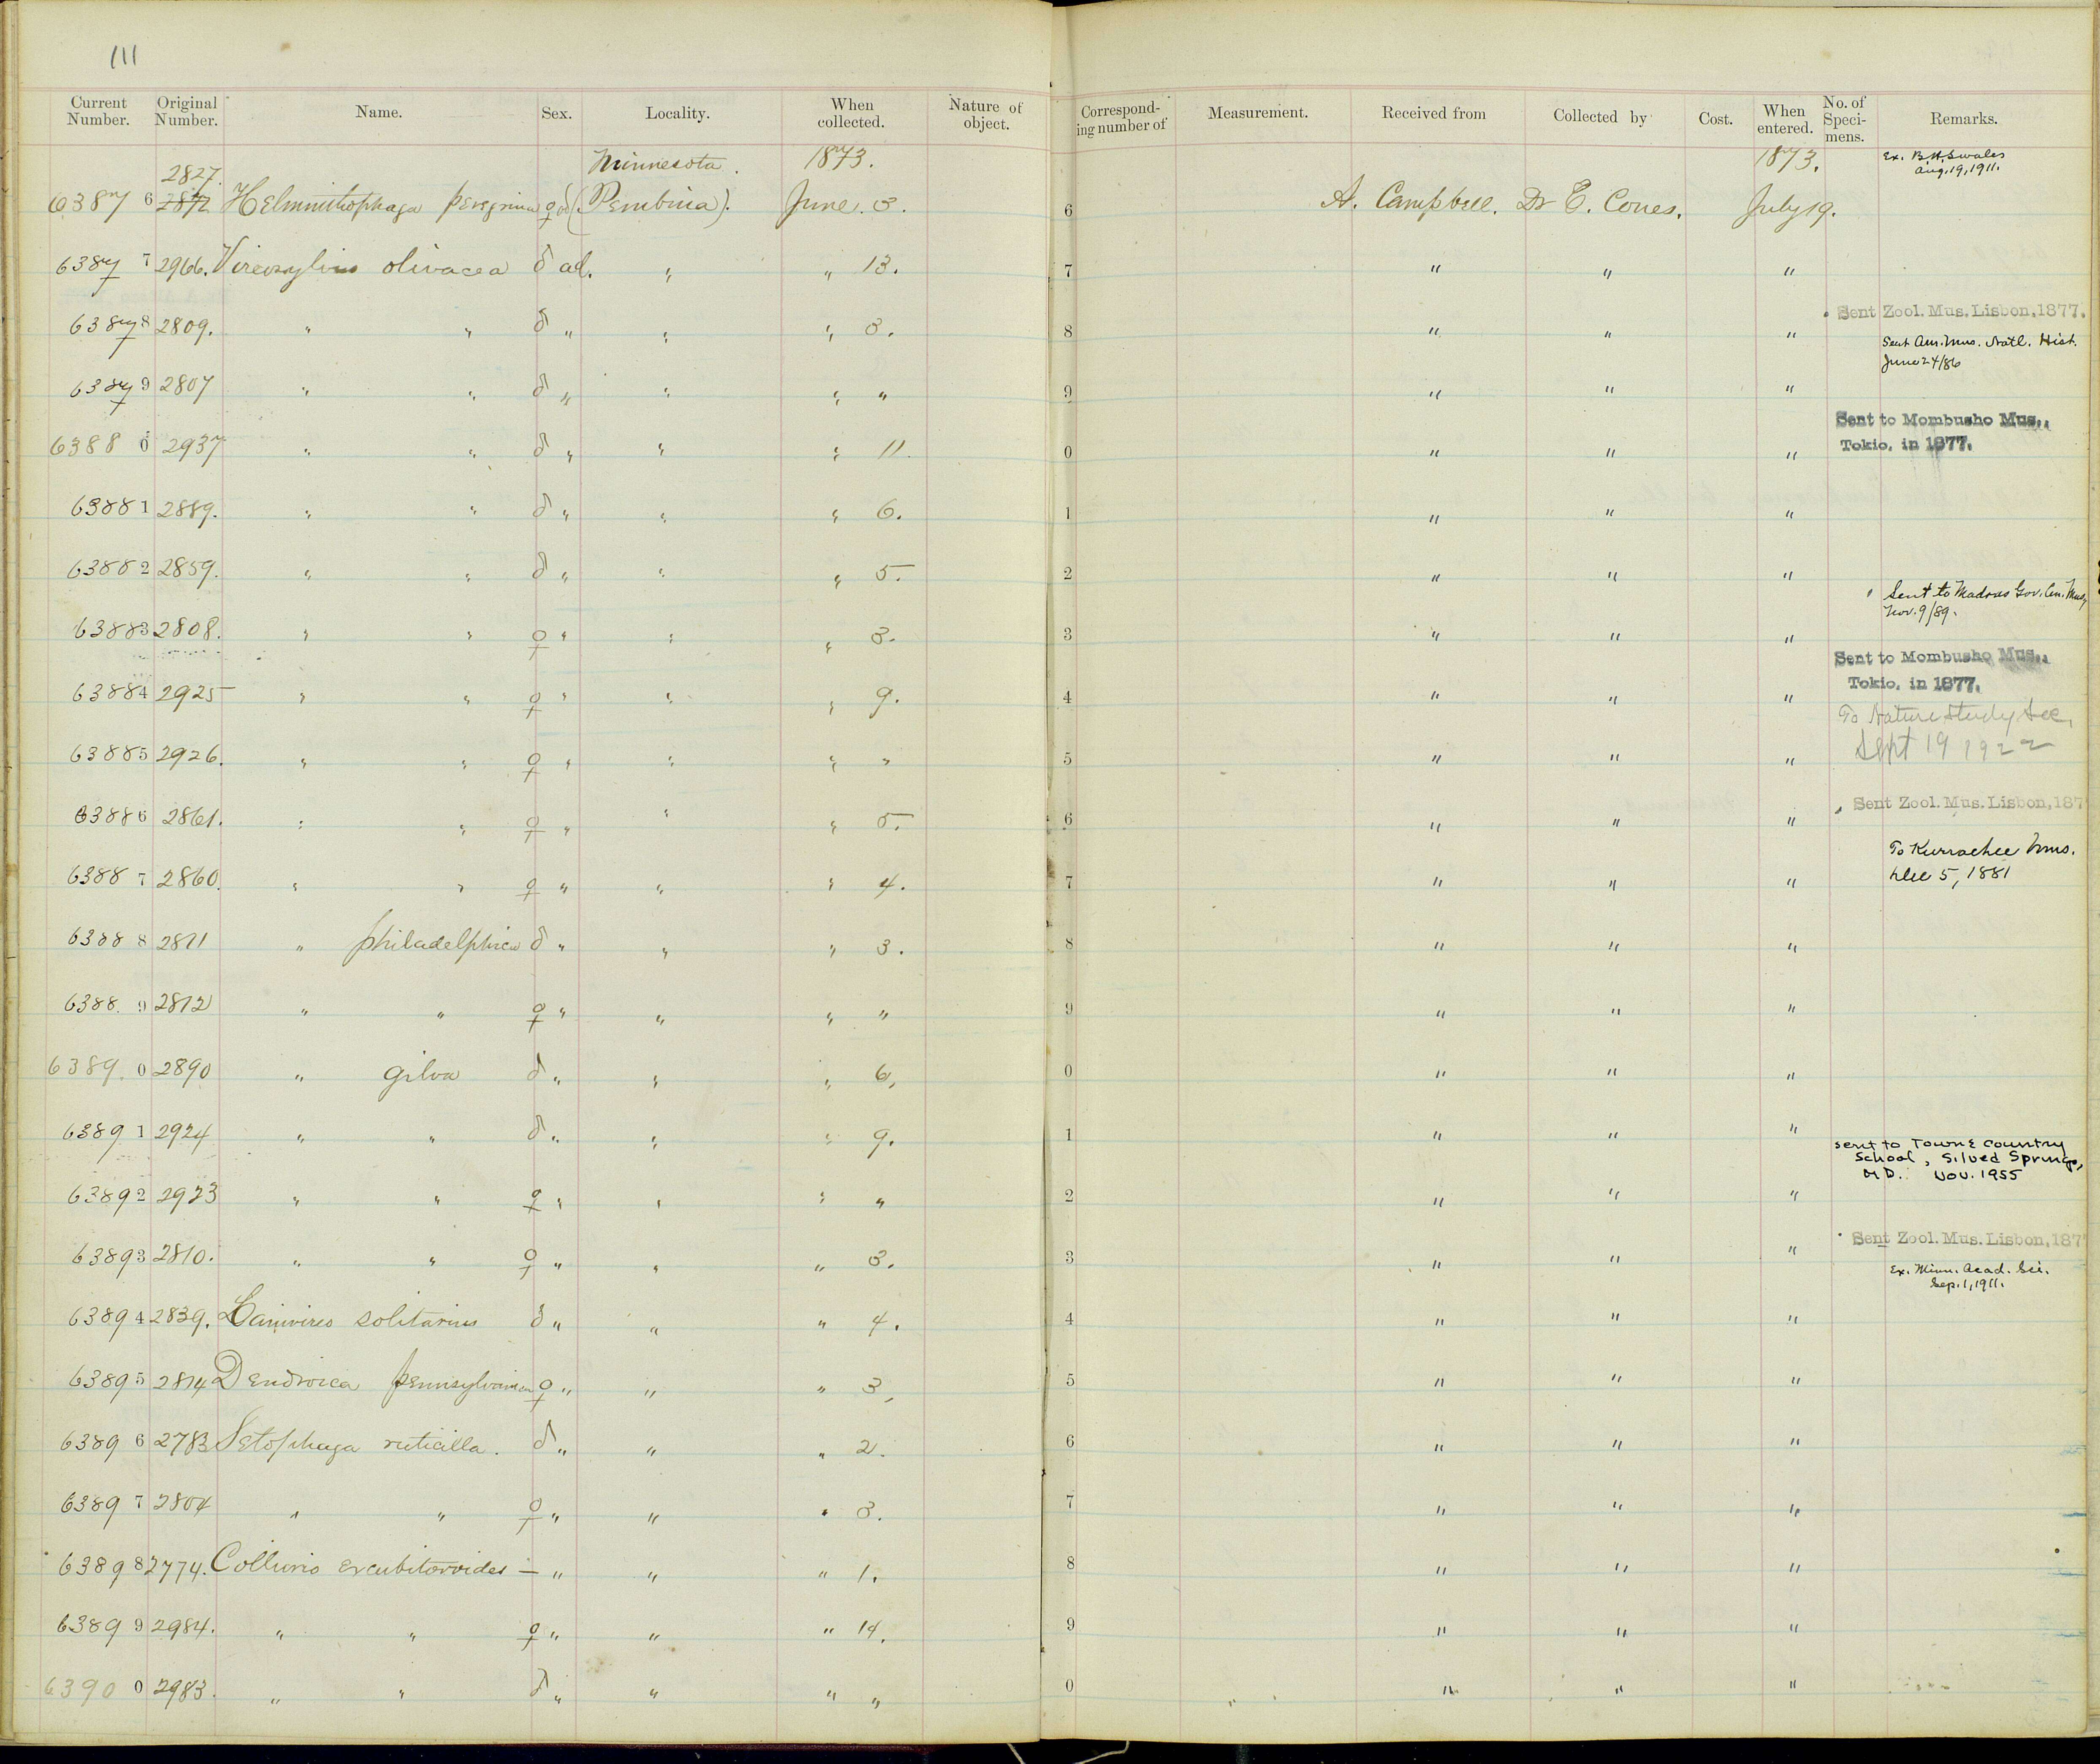 111
Current Number. Original Number. Name. Sex. Locality. When collected. Nature of object. Corresponding number of Measurement. Received from Collected by Cost. When entered. No. of Specimens. Remarks.
2827. Minnesota. 1873. 1873. Ex. B.H. Swales Aug. 19, 1911.
6387 6 2812 Helminthophaga peregrina ♀ ad. (Pembina). June. 3. 6 A. Campbell. Dr E. Coues. July 19.
6387 7 2966. Vireosylvia olivacea ♂ ad. " " 13. 7 " " "
6387 8 2809. " " ♂ " " " 3. 8 " " " Sent Zool. Mus. Lisbon, 1877.
Sent Am. Mus. Natl. Hist. June 24/86
6387 9 2807 " " ♂ " " " " 9 " " "
6388 0 2937 " " ♂ " " " 11. 0 " " " Sent to Mombusho Mus., Tokio, in 1877.
6388 1 2889. " " ♂ " " " 6. 1 " " "
6388 2 2859. " " ♂ " " " 5. 2 " " "
Sent to Madras Gov. Cen. Mus, Nov. 9/89.
6388 3 2808. " " ♀ " " " 3. 3 " " "
6388 4 2925 " " ♀ " " " 9. 4 " " " Sent to Mombusho Mus., Tokio, in 1877.
To Nature Study Sec,
Sept 19 1922
6388 5 2926. " " ♀ " " " " 5 " " "
6388 6 2861. " " ♀ " " " 5. 6 " " " Sent Zool. Mus. Lisbon, 187
To Kurrachee Mus.
Dec 5, 1881
6388 7 2860. " " ♀ " " " 4. 7 " " "
6388 8 2811 " philadelphica ♂ " " " 3. 8 " " "
6388. 9 2812 " " ♀ " " " " 9 " " "
6389. 0 2890 " gilva ♂ " " " 6, 0 " " "
6389 1 2924 " " ♂ " " " 9. 1 " " "
sent to Town & Country School, Silved Springs, MD. Nov. 1955
6389 2 2923 " " ♀ " " " " 2 " " "
6389 3 2810. " " ♀ " " " 3. 3 " " " Sent Zool. Mus. Lisbon, 187
Ex. Minn. Acad. Sci.
Sep. 1, 1911.
6389 4 2839. Lanivireo solitarius ♂ " " " 4. 4 " " "
6389 5 2814 Dendroica pennsylvanica ♀ " " " 3, 5 " " "
6389 6 2783 Setophaga ruticilla. ♂ " " " 2. 6 " " "
6389 7 2804 " " ♀ " " " 3. 7 " " "
6389 8 2774. Collurio excubitoroides — " " " 1. 8 " " "
6389 9 2984. " " ♀ " " " 14. 9 " " "
6390 0 2983. " " ♂ " " " " 0 " " "